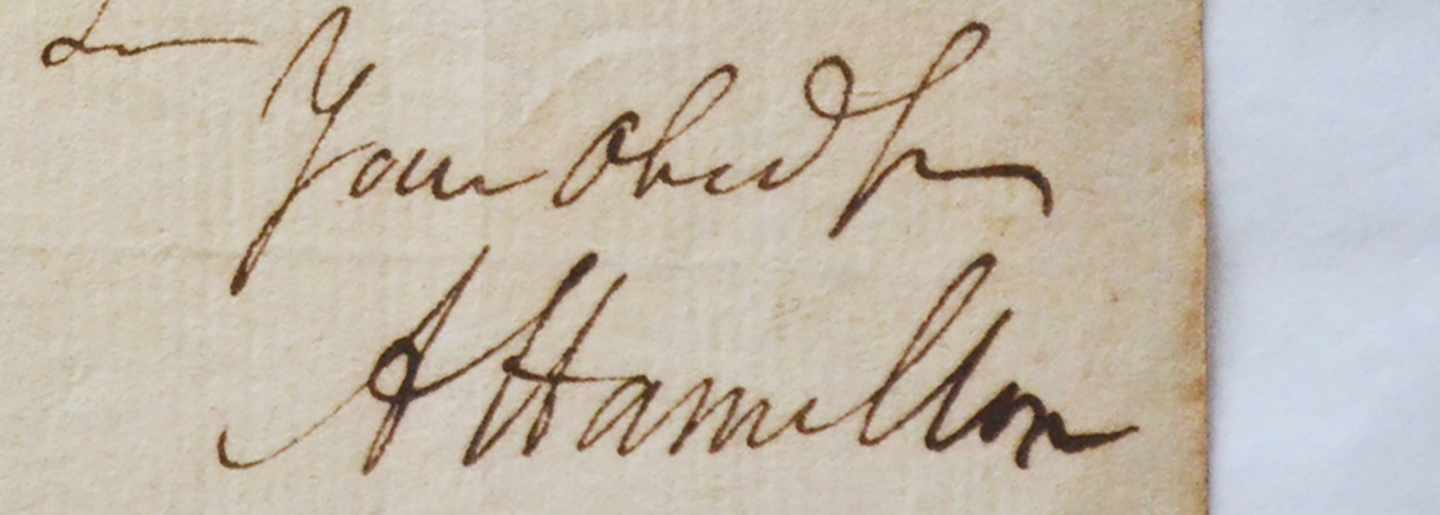 Your Obed Sr
A Hamilton